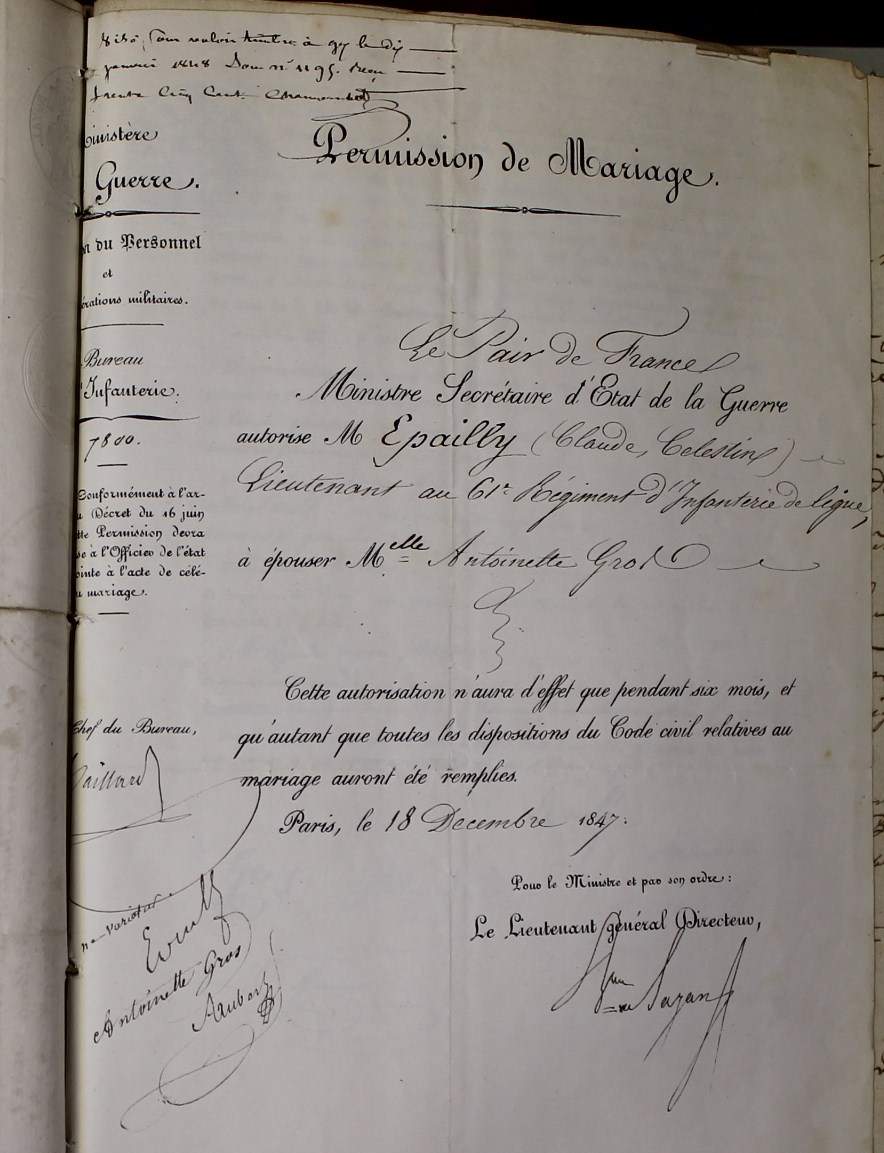 Visé pour valoir timbre à le dix
janvier 1848
trente cinq cent.
inistère
Guerre.
n du Personnel
et
érations militaires.
Bureau
'Infanterie.
7800.
Conformément à l'ar-
u Décret du 16 juin
tte Permission devra
se à l'Officier de l'état
ointe à l'acte de célé-
u mariage.
Chef du Bureau,
Permission de Mariage.
Le Pair de France
Ministre Secrétaire d'Etat de la Guerre
autorise M Epailly (Claude, Celestin)
Lieutenant au 61e Régiment d'Infanterie de ligne,
à épouser Melle Antoinette Gros
Cette autorisation n'aura d'effet que pendant six mois, et
qu'autant que toutes les dispositions du Code civil relatives au
mariage auront été remplies.
Paris, le 18 Decembre 1847.
Pour le Ministre et par son ordre:
Le Lieutenant général Directeur,
ne varietur
Antoinette Gros